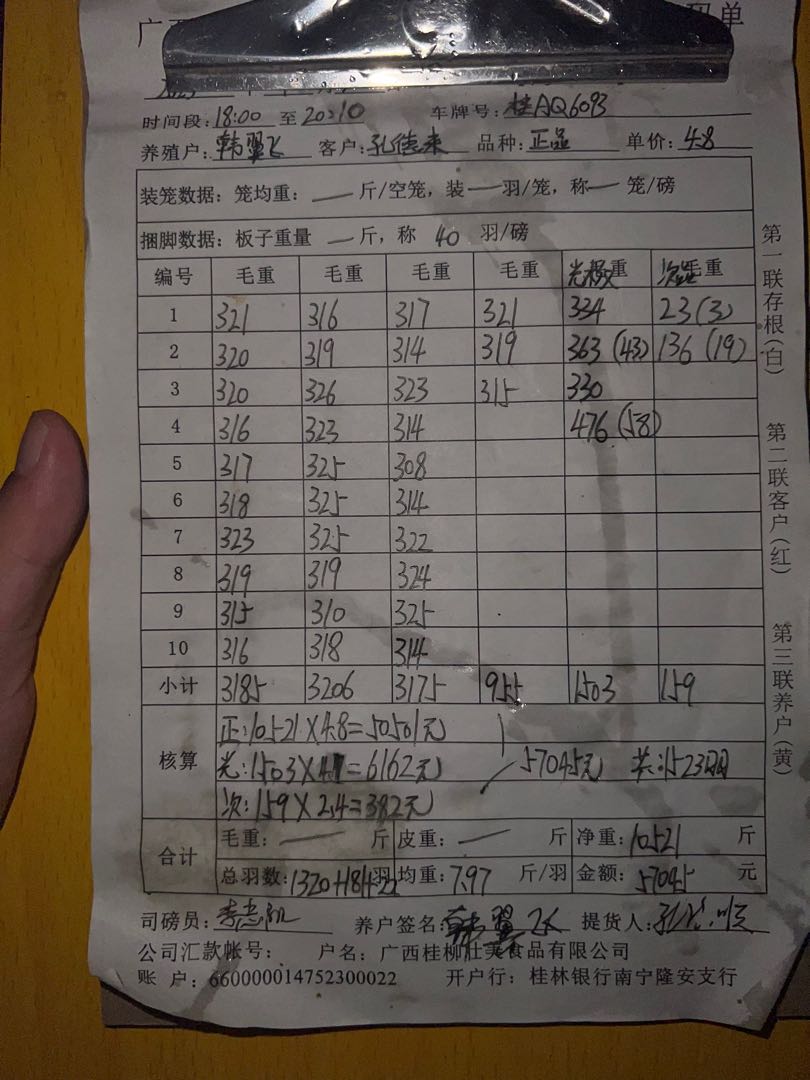 广西 码单
时间段:18:00 至 20:10 车牌号:桂AQ6093
养殖户:韩翼飞 客户: 品种:正品 单价:4.8
装笼数据:笼均重:— 斤/空笼,装—羽/笼,称— 笼/磅
捆脚数据:板子重量 — 斤,称 40 羽/磅
编号 毛重 毛重 毛重 毛重 重 次品毛重
1 321 316 317 321 334 23(3)
2 320 319 314 319 363(43) 136(19)
3 320 326 323 315 330
4 316 323 314 476(58)
5 317 325 308
6 318 325 314
7 323 325 322
8 319 319 324
9 315 310 325
10 316 318 314
小计 3185 3206 3175 955 1503 159
核算 正:10521×4.8=50501元
光:1503×4.1=6162元 57045元 共:1523羽
次:159×2.4=382元
合计 毛重:— 斤 皮重:— 斤 净重:10521 斤
总羽数:1320+184+22羽 均重:7.97 斤/羽 金额:57045 元
司磅员: 养户签名:韩翼飞 提货人:
公司汇款帐号: 户名:广西桂柳壮美食品有限公司
账 户:660000014752300022 开户行:桂林银行南宁隆安支行
第一联存根(白)
第二联客户(红)
第三联养户(黄)